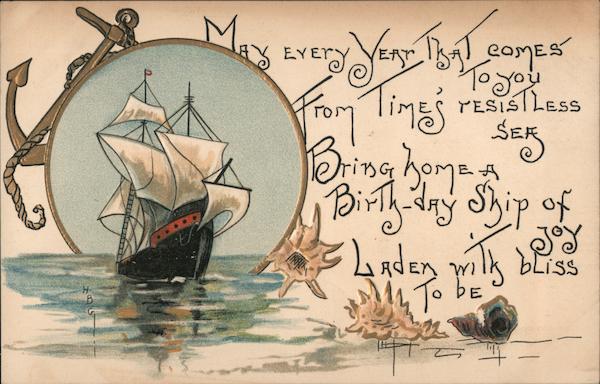 May every Year that comes
to you
From Time's resistless
sea
Bring home a
Birth-day Ship of
joy
Laden with bliss
to be
H
B
G